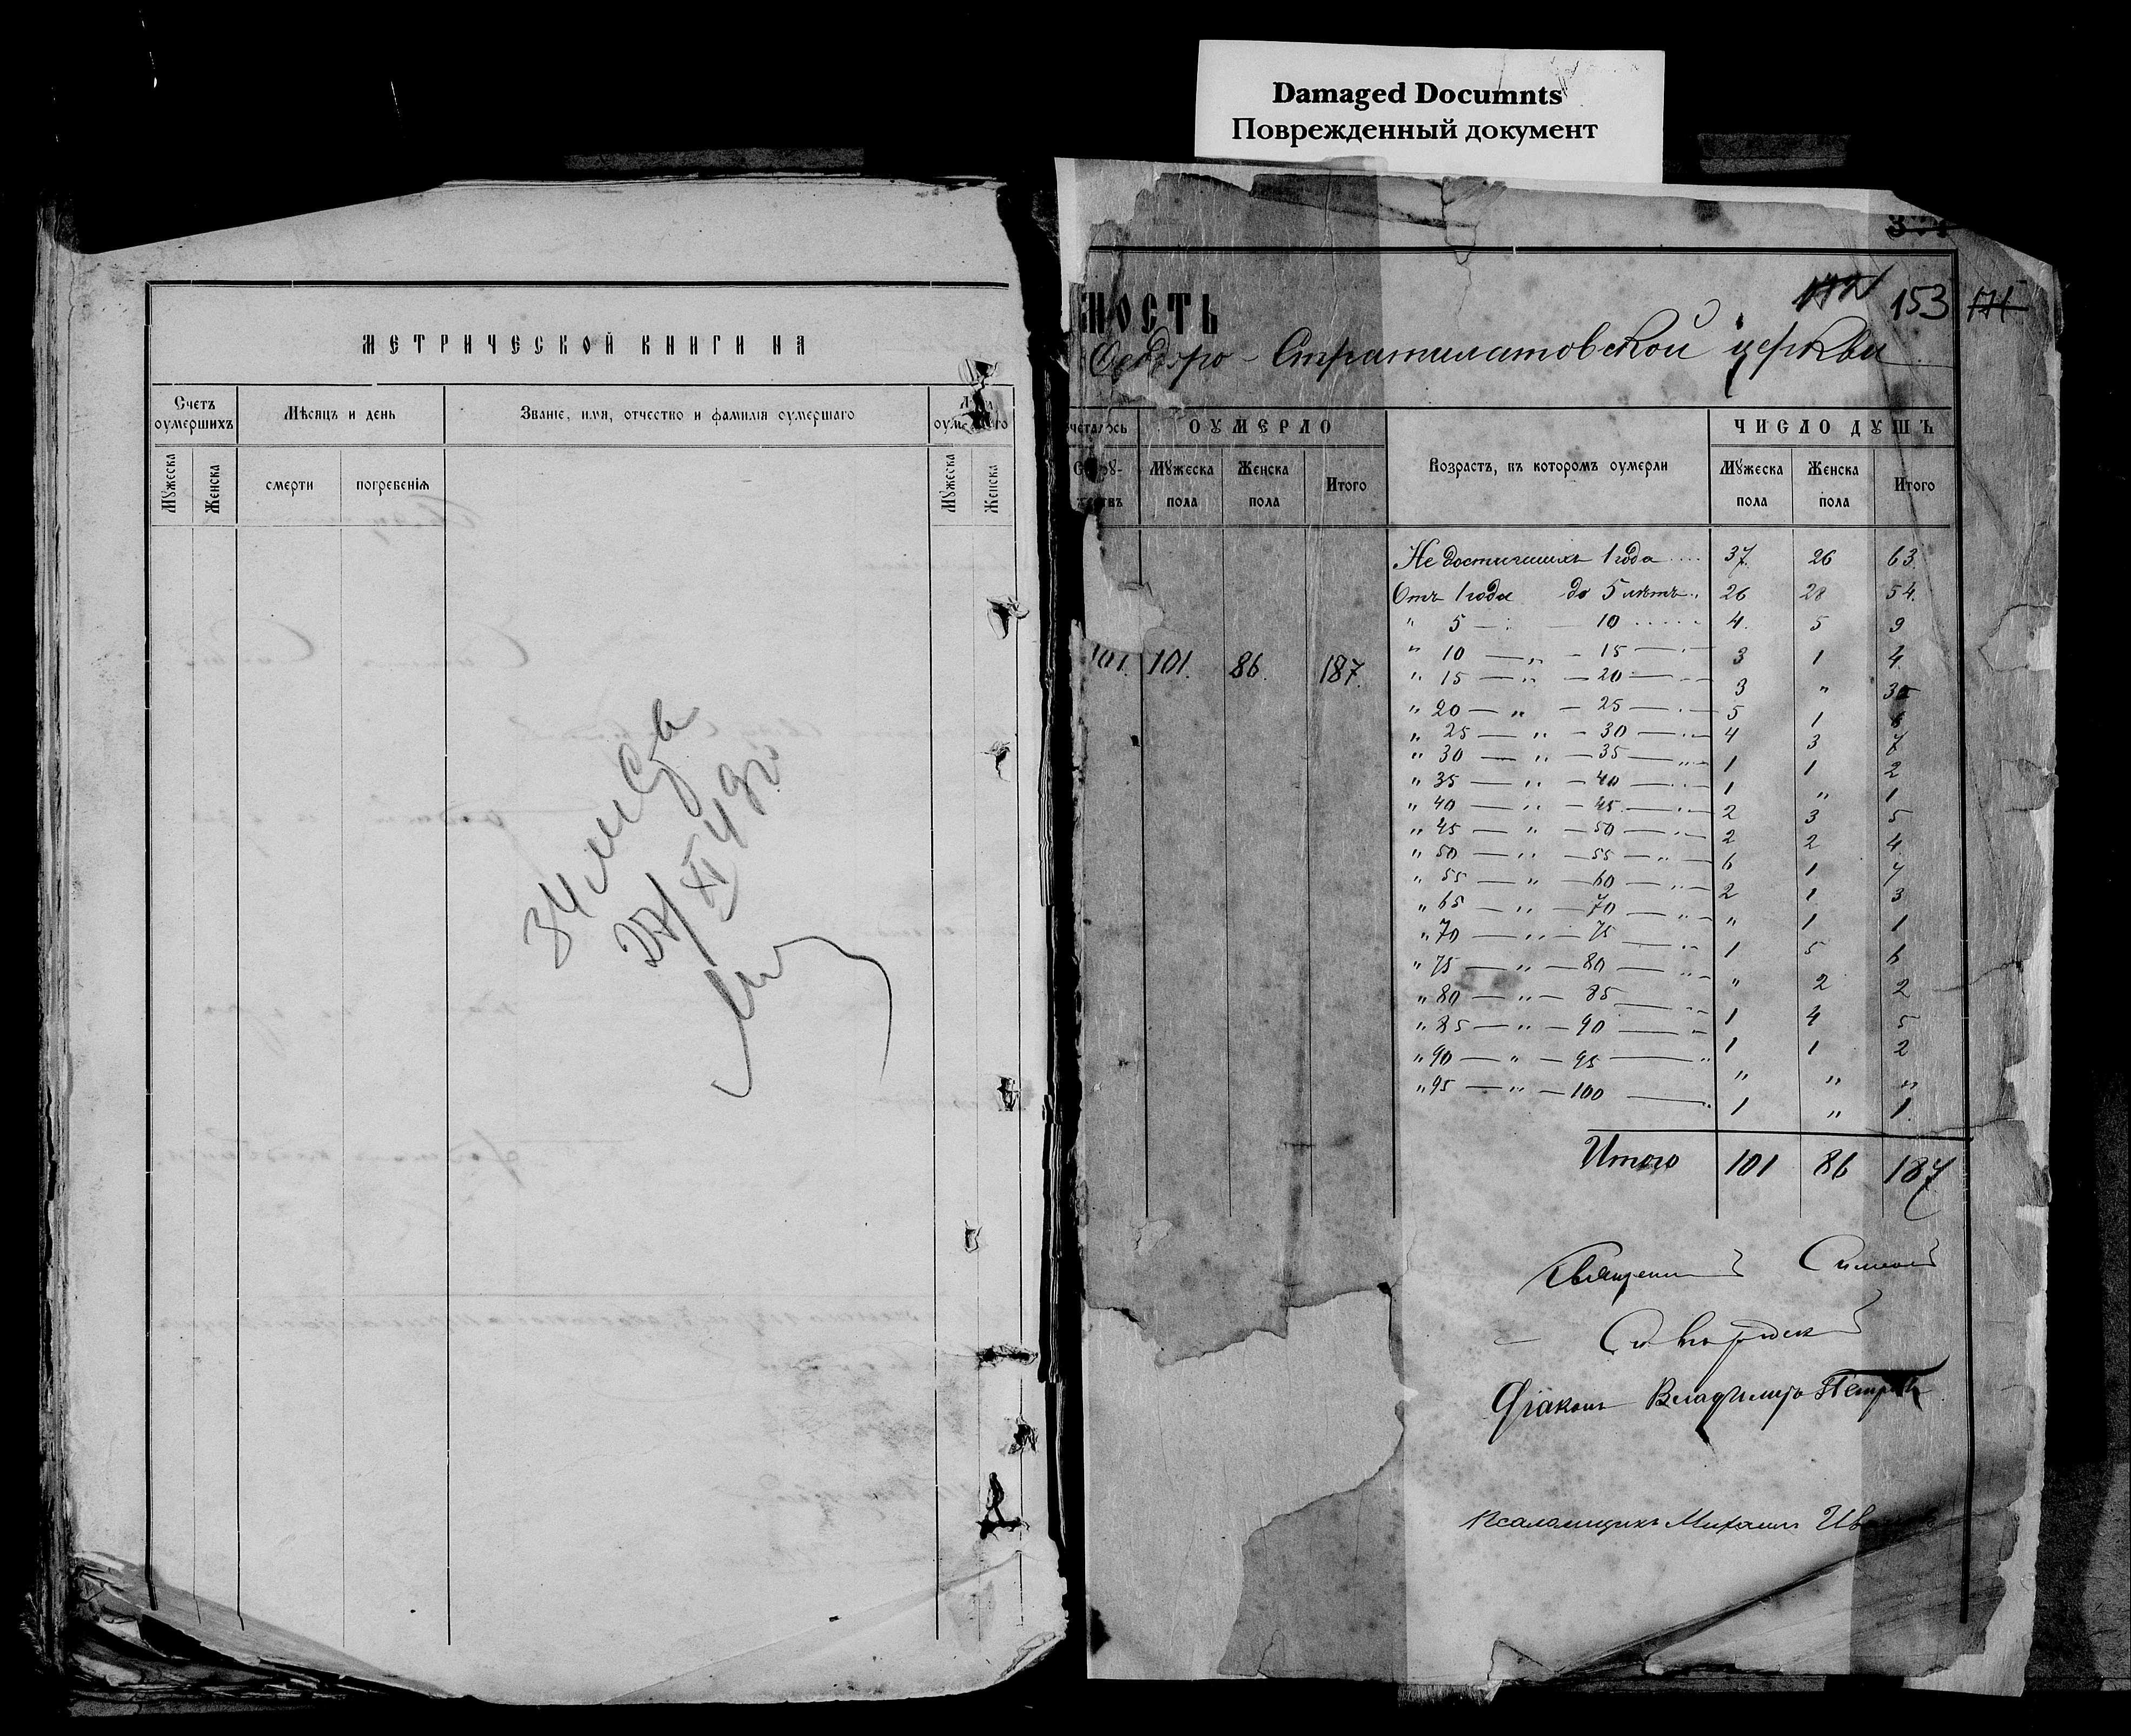 Damaged Documnts
Поврежденный документ
МЕТРИЧЕСКОЙ КНИГИ НА
Счетъ оумершихъ
Мѣсяцъ и день
Званіе, имя, отчество и фамилія оумершаго
Мꙋжеска
Женска
смерти
погребенія
Мꙋжеска
Женска
МОСТЬ
153
Стратилатовской церкви
ОУМЕРЛО
Возрастъ, въ которомъ оумерли
ЧИСЛО ДУШЪ
Мꙋжеска пола
Женска пола
Итого
Мꙋжеска пола
Женска пола
Итого
Недостигшихъ 1 года 37. 26 63.
Отъ 1 года до 5 лѣтъ 26 28 54.
" 5 — 10 4. 5 9
" 10 — " — 15 3 1 4
" 15 — " — 20 3 " 3
" 20 — " — 25 5 1 6
" 25 — " — 30 4 3 7
" 30 — " — 35 1 1 2
" 35 — " — 40 1 " 1
" 40 — " — 45 2 3 5
" 45 — " — 50 2 2 4
" 50 — " — 55 6 1 7
" 55 — " — 60 2 1 3
" 65 — " — 70 " 1 1
" 70 — " — 75 1 5 6
" 75 — " — 80 " 2 2
" 80 — " — 85 1 4 5
" 85 — " — 90 1 1 2
" 90 — " — 95 " " "
" 95 — " — 100 1 " 1.
101. 101. 86. 187.
Итого 101 86 187
Діаконъ Владимiръ Петровъ
Псаломщикъ Михаилъ
34 лист
27/XI 49г.